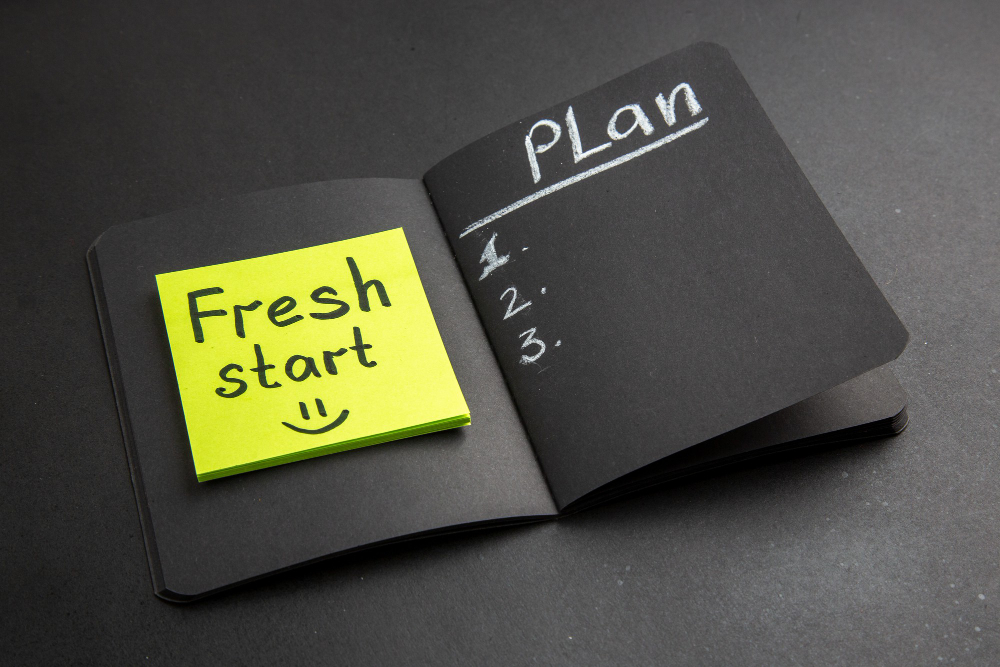 Fresh
start
PLan
1.
2.
3.